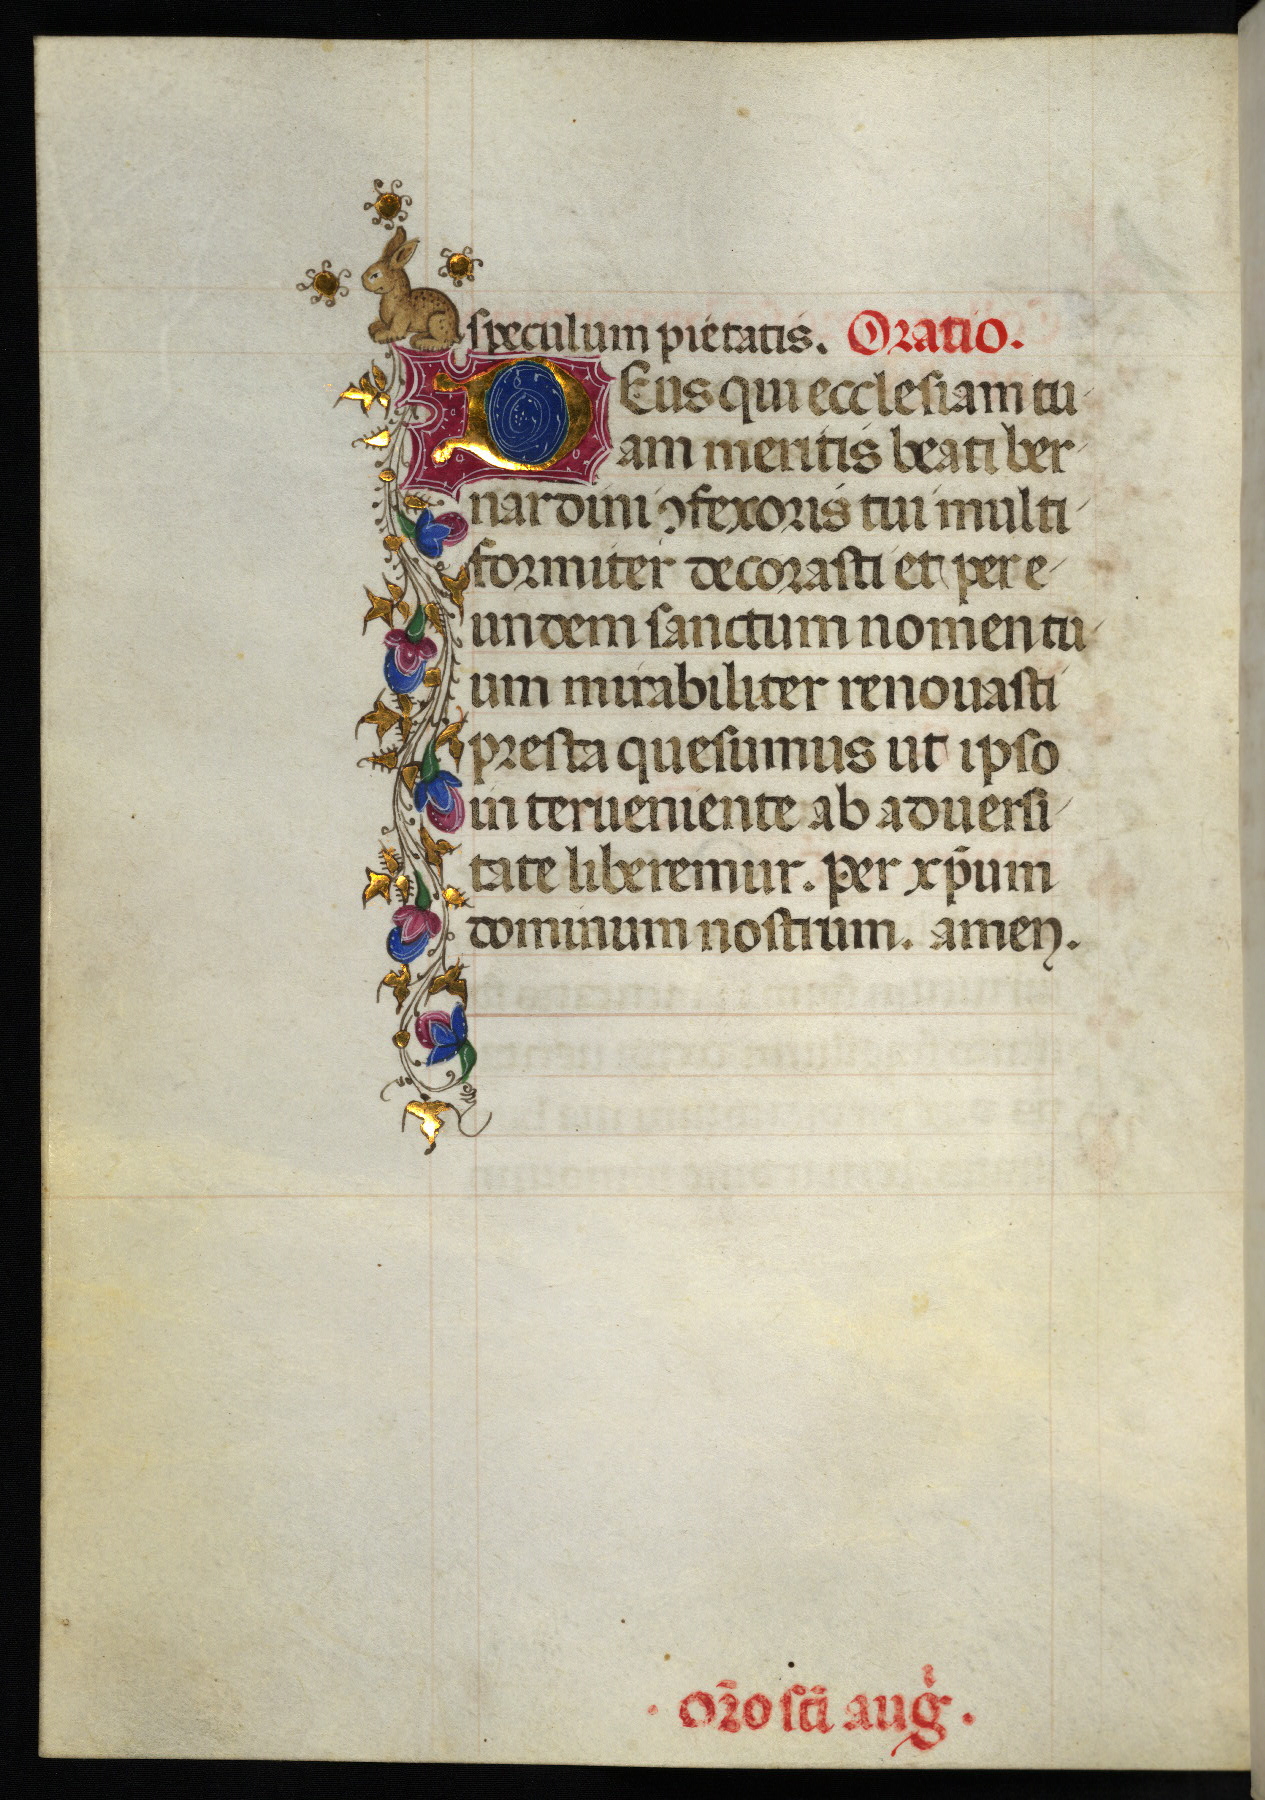 speculum pietatis. Oratio.
DEus qui ecclesiam tu
am meritis beati ber
nardini ꝯfexoris tui multi
formiter decorasti et per e
undem sanctum nomen tu
um mirabiliter renouasti
presta quesumus ut ipso
interueniente ab aduersi
tate liberemur. per xp̄um
dominum nostrum. amen.
· or̄o sc̄i augⁱ.